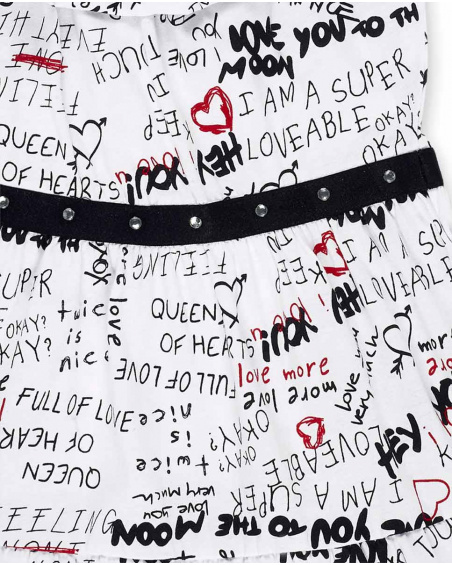 LOVE YOU TO TH
MOON
I LOVE
IN TOUCH
KEEP
FEELIN
I AM A SUPER
LOVEABLE
OKAY?
OKAY
QUEEN
OF HEARTS
HEY
YOU!
FEELING
KEEP
I AM A SU
LOVEABLE
HEY
YOU!
UPER
OKAY?
KAY?
twice
is
nice
love
xoxo
QUEEN
OF HEARTS
FULL OF LOVE
love more
love more
love you
very much
more
FULL OF LOVE
OF HEAR
QUEEN
nice
is
twice
OKAY?
OKAY?
LOVEABLE
I AM A SUPER
HEY
love you
very much
FEELING
LOVE YOU TO THE
MOON
LOVE YOU
TOUCH